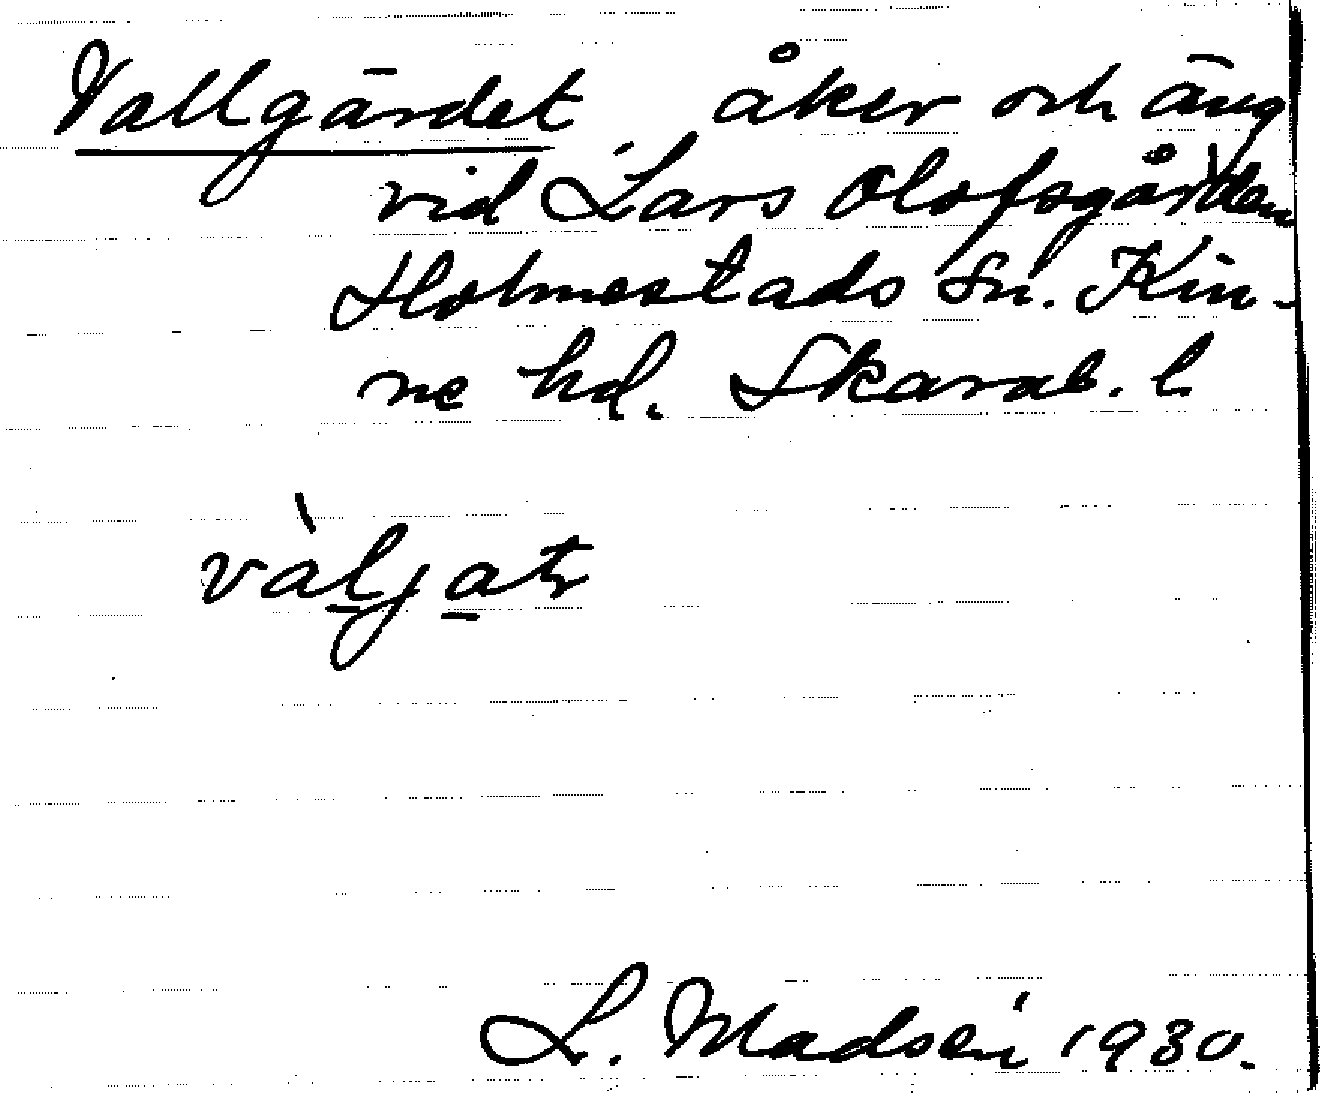 Vallgärdet åker och äng
vid Lars Olofsgården
Holmestads sn. Kin-
ne hd. Skarab. l
vàljatr
L. Madsén 1930.